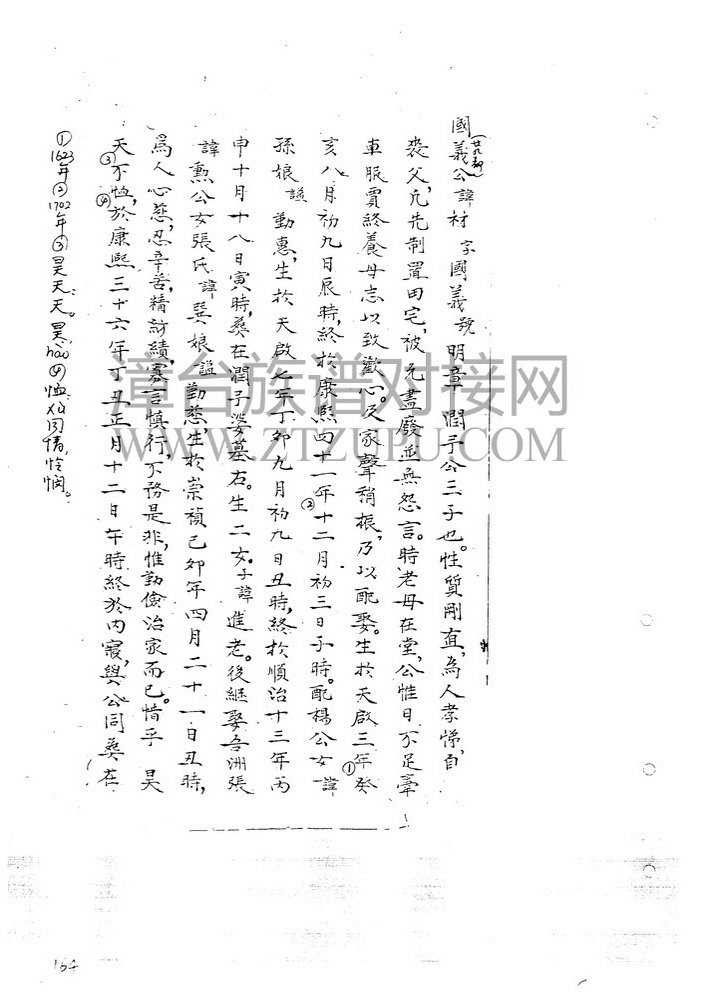 國義公諱材字國義號明章潤于公三子也。性質剛直,為人孝悌,自
(廿九部)
喪父,凡先制置田宅,被兄盡廢並無怨言。時老母在堂,公惟日不足牽
車服賈終養母志以致歡心。及家聲稍振,乃以配娶。生於天啟三年癸①
亥八月初九日辰時,終於康熙四十一年②十二月初三日子時。配楊公女諱
孫娘謚勤惠,生於天啟七年丁卯九月初九日丑時,終於順治十三年丙
申十月十八日寅時,葬在潤于婆墓右。生二女。子諱進老。後繼娶吾洲張
諱勳公女張氏諱巽娘謚勤慈,生於崇禎己卯年四月二十一日丑時,
為人心慈,忍辛苦,精紡績,寡言慎行,不務是非,惟勤儉治家而已。惜乎 昊
天③不恤④,於康熙三十六年丁丑正月十二日午時終於內寢,與公同葬在
①1623年②1702年③昊天:天。昊,hào④恤:xù同情,憐憫。
164
漳台族谱对接网
WWW.ZTZUPU.COM